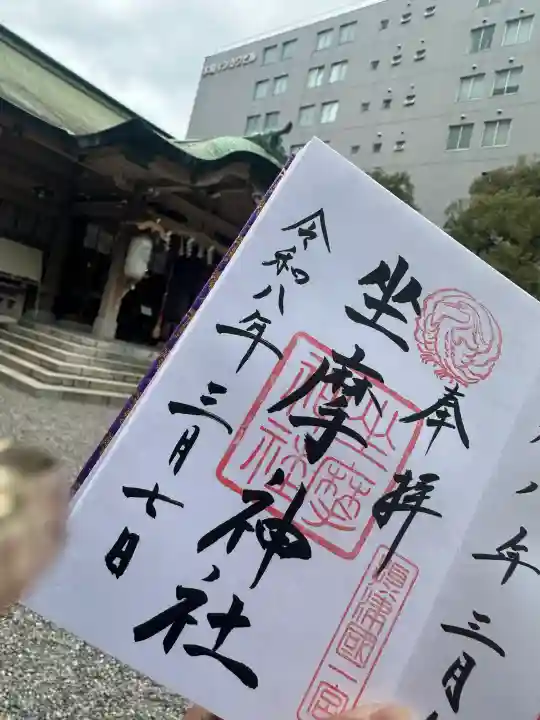 奉拝
坐摩神社
令和八年三月七日
坐摩神社
摂津國一宮
八年三月